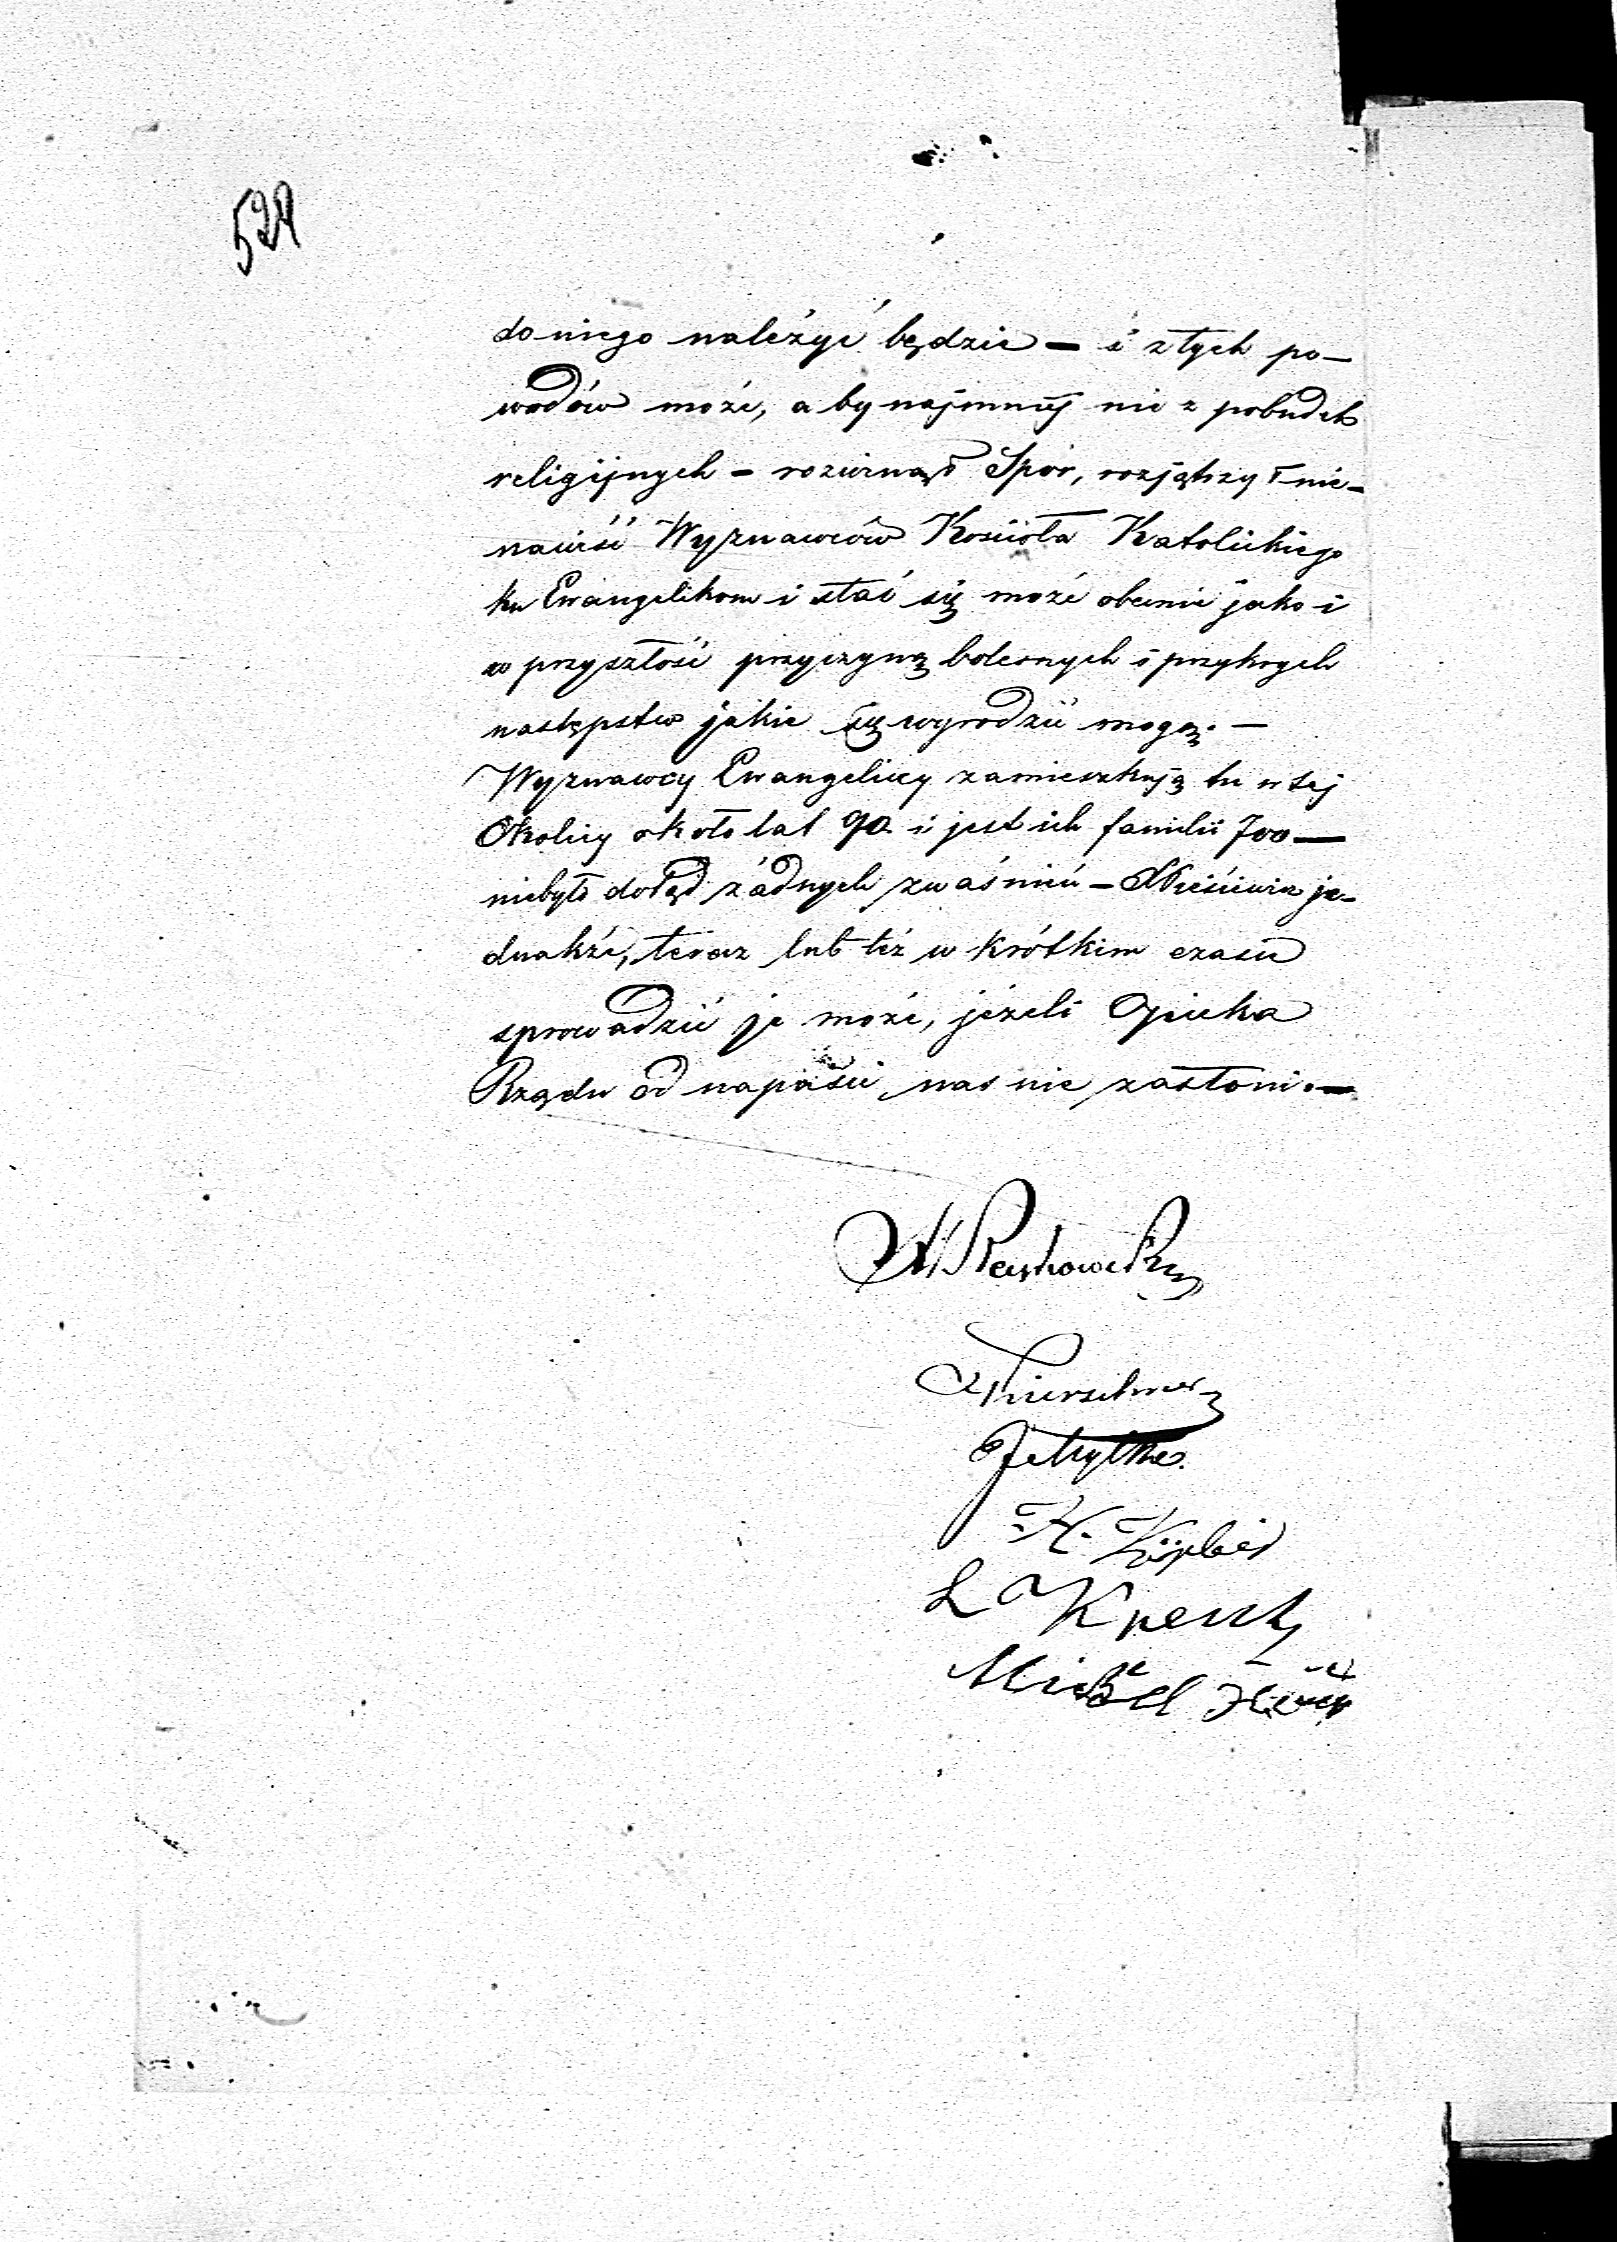 529
do niego należyć będzie — i z tych po—
wodów może, a by najmniéj nie z pobudek
religijnych — rozwinął Spór, rozjątrzył nie—
nawiść Wyznawców Kościoła Katolickiego
ku Ewangelikom i stać się może obecnie jako i
w przyszłość przyczyną bolesnych i przykrych
następstw jakie się wyrodzić mogą. —
Wyznawcy Ewangeliccy zamieszkują tu w tej
Okolicy około lat 90 i jest ich familii 700 —
niebyło dotąd żadnych zwaśnień — X Kieściewicz je—
dnakże, teraz lub téż w krótkim czasie
sprowadzić je może, jeżeli Opieka
Rządu od napaści nas nie zasłoni. —
K.
L Knent
Michael